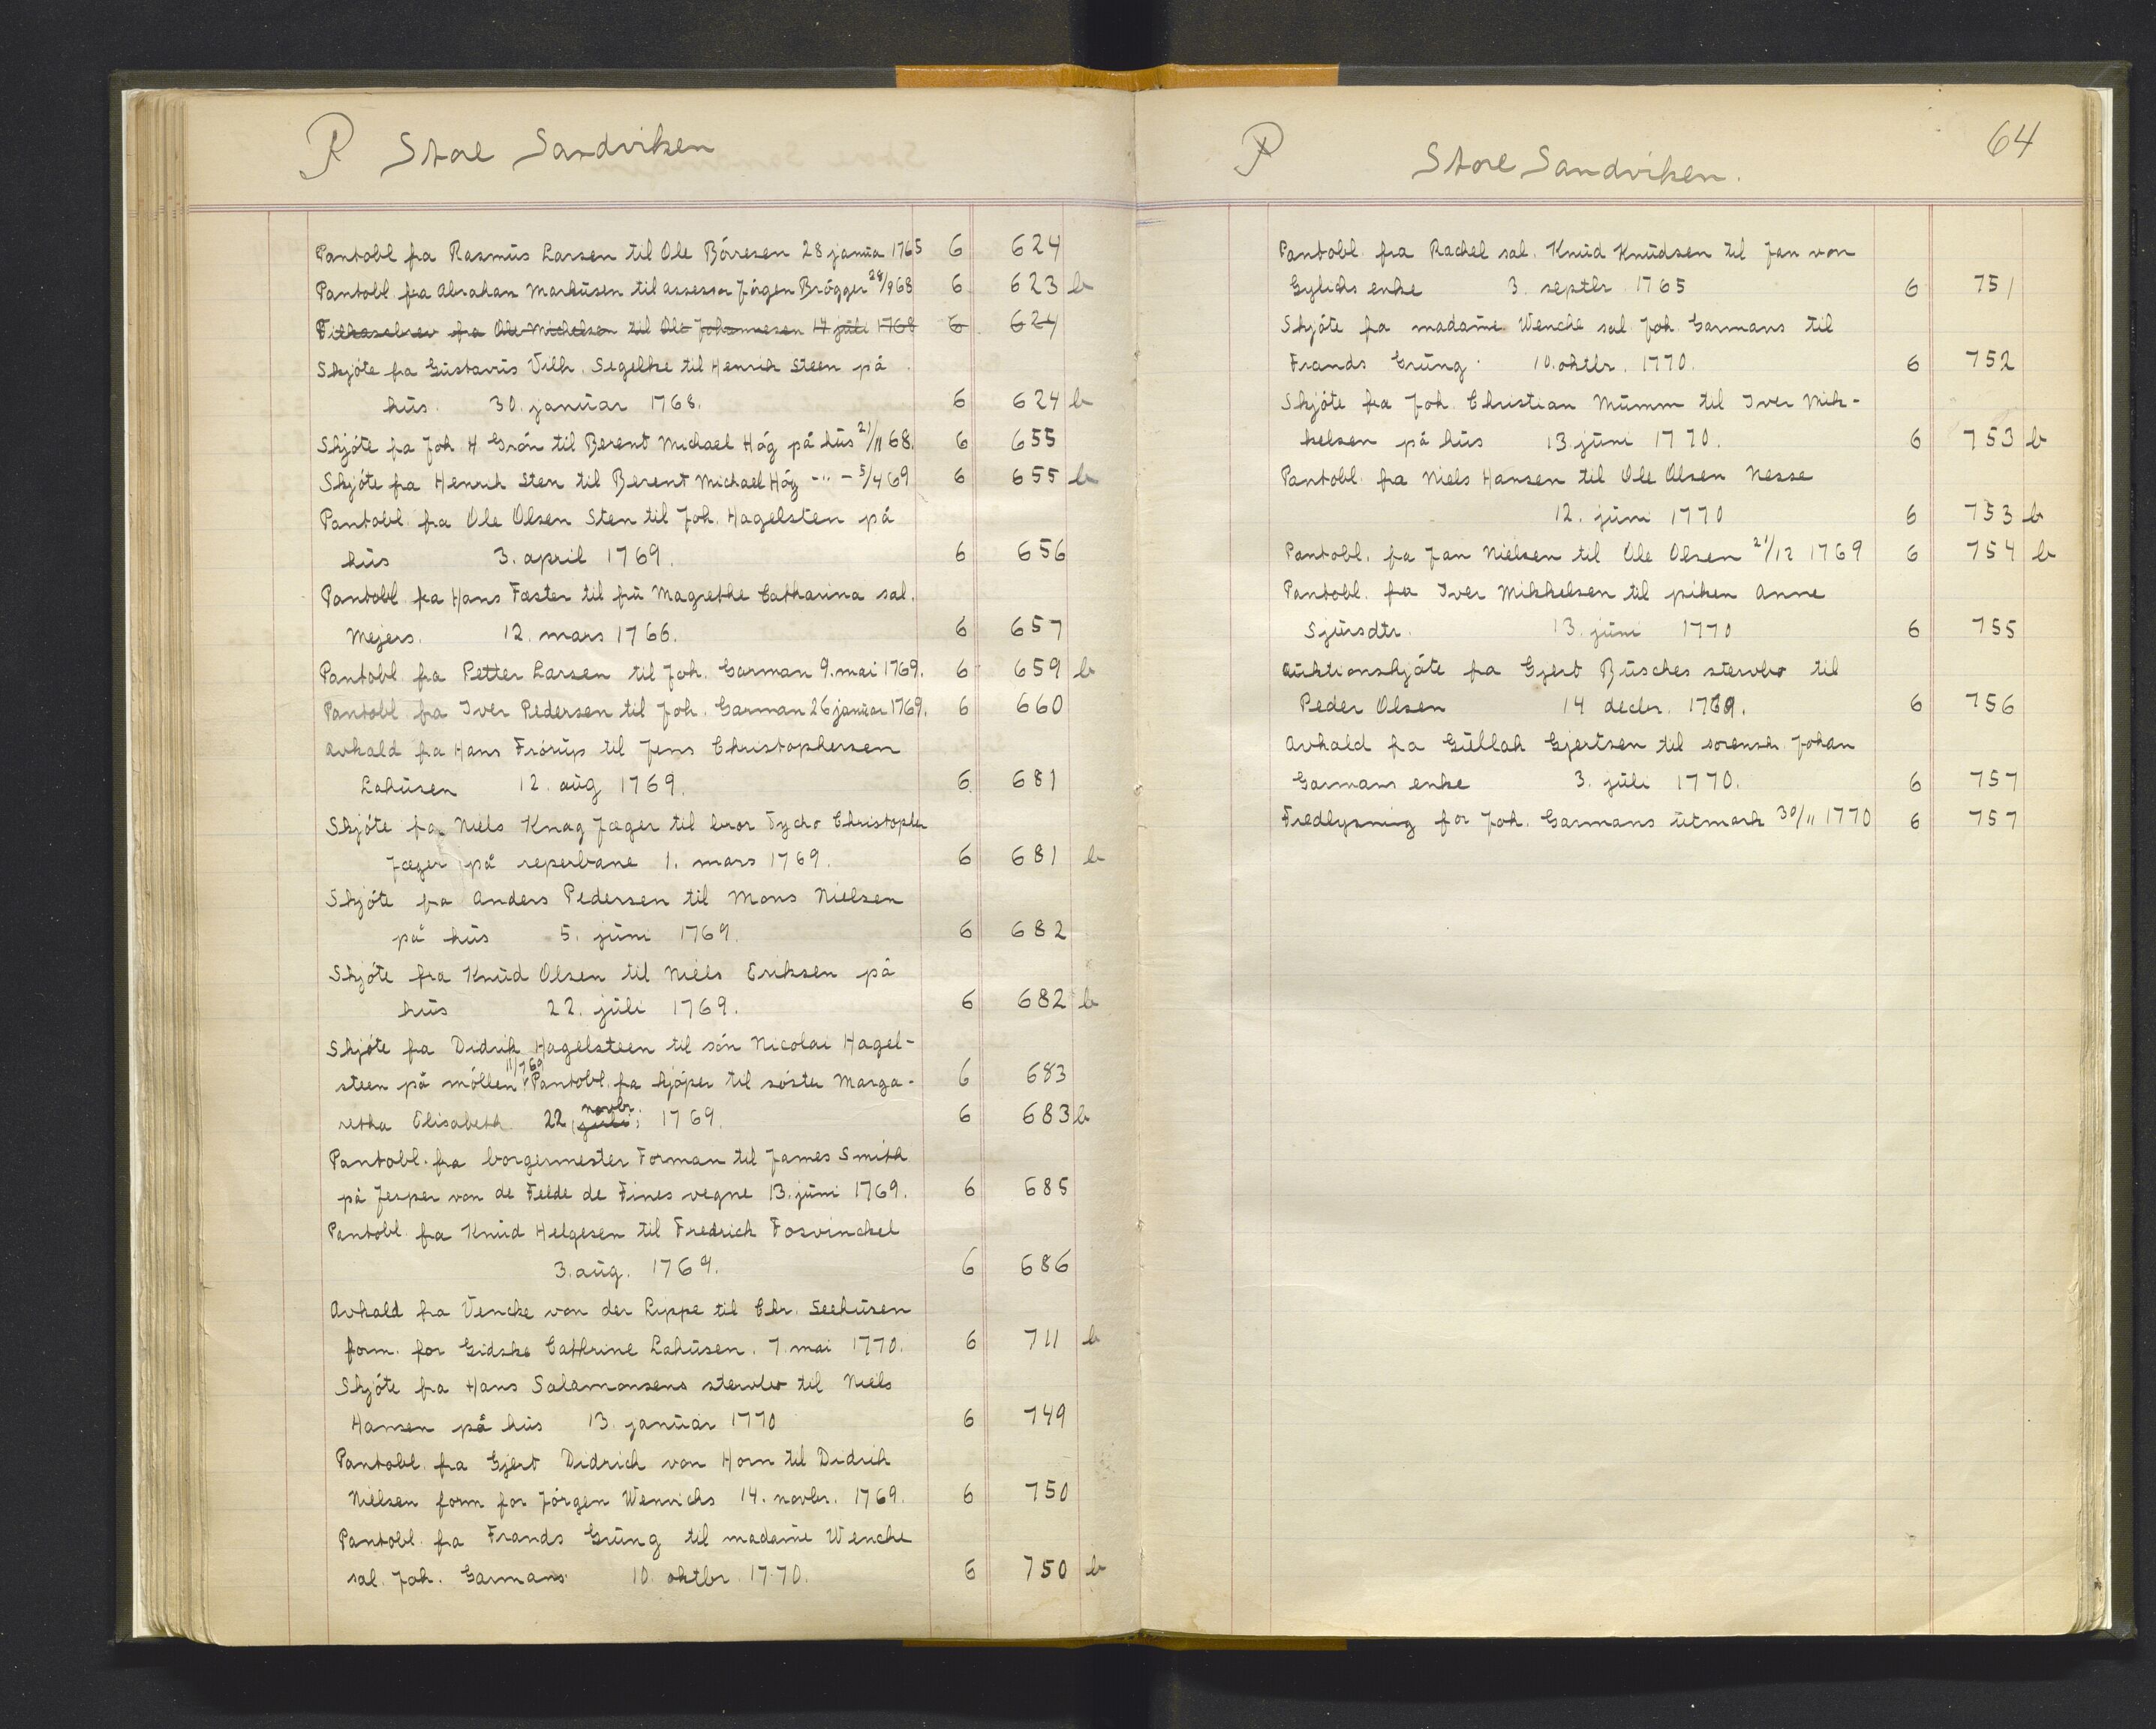 R Store Sandviken
Pantobl fra Rasmus Larsen til Ole Börresen 28 janua 1765 6 624
Pantobl. fra Abraham Markusen til assessor Jörgen Brögger 28/9 68 6 623 b
Fitkasebrev fra Ole Michelsen til Ole Johannesen 14 juli 1768 6 624
Skjöte fra Gustavus Vilh. Segelke til Henrik Steen på
hus. 30. januar 1768. 6 624 b
Skjöte fra Joh H Grön til Berent Michael Hög på hus 21/11 68. 6 655
Skjöte fra Henrik Sten til Berent Michael Hög -"- 5/4 69 6 655 b
Pantobl. fra Ole Olsen Sten til Joh. Hagelsten på
hus 3. april 1769. 6 656
Pantobl. fra Hans Fæster til fru Magrethe Catharina sal.
Mejers. 12. mars 1766. 6 657
Pantobl fra Petter Larsen til Joh. Garman 9. mai 1769. 6 659 b
Pantobl fra Iver Pedersen til Joh. Garman 26 januar 1769. 6 660
Avkald fra Hans Frörup til Jens Christophersen
Lahusen 12. aug 1769. 6 681
Skjöte fra Niels Knag Jæger til bror Tycho Christopher
Jæger på reperbane 1. mars 1769. 6 681 b
Skjöte fra Anders Pedersen til Mons Nielsen
på hus 5. juni 1769. 6 682
Skjöte fra Knud Olsen til Niels Eriksen på
hus 22. juli 1769. 6 682 b
Skjöte fra Didrik Hagelsteen til sön Nicolai Hagel-
steen på möllen 11/7 69 Pantobl. fra kjöper til söster Marga- 6 683
retha Elisabeth 22. juli novbr. 1769. 6 683 b
Pantobl. fra borgermester Forman til James Smith
på Jesper von de Felde de Fines vegne 13. juni 1769. 6 685
Pantobl. fra Knud Helgesen til Fredrich Fosvinckel
3. aug. 1769. 6 686
Avkald fra Vencke von der Lippe til Chr. Seehusen
form. for Gidske Cathrine Lahusen. 7. mai 1770. 6 711 b
Skjöte fra Hans Salamonsens stervbo til Niels
Hansen på hus 13. januar 1770 6 749
Pantobl. fra Gjert Didrich von Horn til Didrik
Nielsen form for Jörgen Wenrichs 14. novbr. 1769. 6 750
Pantobl. fra Frands Grung til madame Wenche
sal. Joh. Garmans 10. oktbr. 1770. 6 750 b
R Store Sandviken. 64
Pantobl. fra Rachel sal. Knud Knudsen til Jan von
Gylichs enke 3. septbr. 1765 6 751
Skjöte fra madame Wenche sal. Joh. Garmans til
Frands Grung 10. oktbr. 1770. 6 752
Skjöte fra Joh. Christian Mumm til Iver Mik-
kelsen på hus 13. juni 1770. 6 753 b
Pantobl. fra Niels Hansen til Ole Olsen Nesse
12. juni 1770 6 753 b
Pantobl. fra Jan Nielsen til Ole Olsen 21/12 1769 6 754 b
Pantobl. fra Iver Mikkelsen til piken Anne
Sjursdtr. 13. juni 1770 6 755
Auktionskjöte fra Gjert Busches stervbo til
Peder Olsen 14 decbr. 1769. 6 756
Avkald fra Gullak Gjertsen til sorenskr. Johan
Garmans enke 3. juli 1770. 6 757
Fredlysning for Joh. Garmans utmark 30/11 1770 6 757